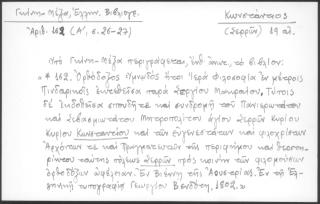 Γκίνη-Μέξα, Ἑλλην. Βιβλιογρ. Κωνστάντιος
Ἀριθ. 162 (Α', σ. 26-27) (Σερρῶν) 19 αἰ.
Ὑπὸ Γκίνη-Μέξα περιγράφεται, ὑπ' ἀριθ., τὸ βιβλίον:
"* 162. Ὀρθόδοξος Ὑμνῳδὸς ἤτοι Ἱερὰ Φιλοσοφία ἐν μέτροις
Πινδαρικοῖς συντεθεῖσα παρὰ Σεργίου Μακραίου, τύποις
δὲ ἐκδοθεῖσα σπουδῇ τε καὶ συνδρομῇ τοῦ Πανιερωτάτου
καὶ Σεβασμιωτάτου Μητροπολίτου ἁγίου Σερρῶν Κυρίου
Κυρίου Κωνσταντίου καὶ τῶν εὐγενεστάτων καὶ φιλοχρίστων
Ἀρχόντων τε καὶ Πραγματευτῶν τῆς περιφήμου καὶ θεοτη-
ρήτου ταύτης πόλεως Σερρῶν πρὸς κοινὴν τῶν φιλομούσων
ὀρθοδόξων ὠφέλειαν. Ἐν Βιέννῃ τῆς Ἀουστρίας. Ἐν τῇ Ἑλ-
ληνικῇ τυπογραφίᾳ Γεωργίου Βενδότη, 1802."